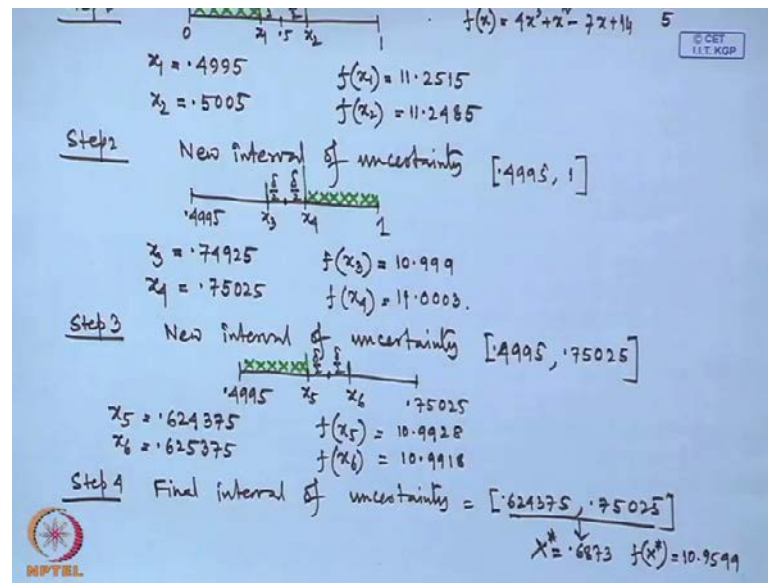 0 x₁ .5 x₂ 1
f(x) = 4x³+x²-7x+14 5
© CET
I.I.T. KGP
x₁ = .4995 f(x₁) = 11.2515
x₂ = .5005 f(x₂) = 11.2485
Step2 New interval of uncertainty [.4995, 1]
δ/2 δ/2
.4995 x₃ x₄ 1
x₃ = .74925 f(x₃) = 10.999
x₄ = .75025 f(x₄) = 11.0003.
Step3 New interval of uncertainty [.4995, .75025]
δ/2 δ/2
.4995 x₅ x₆ .75025
x₅ = .624375 f(x₅) = 10.9928
x₆ = .625375 f(x₆) = 10.9918
Step4 Final interval of uncertainty = [.624375, .75025]
x* = .6873 f(x*) = 10.9599
NPTEL